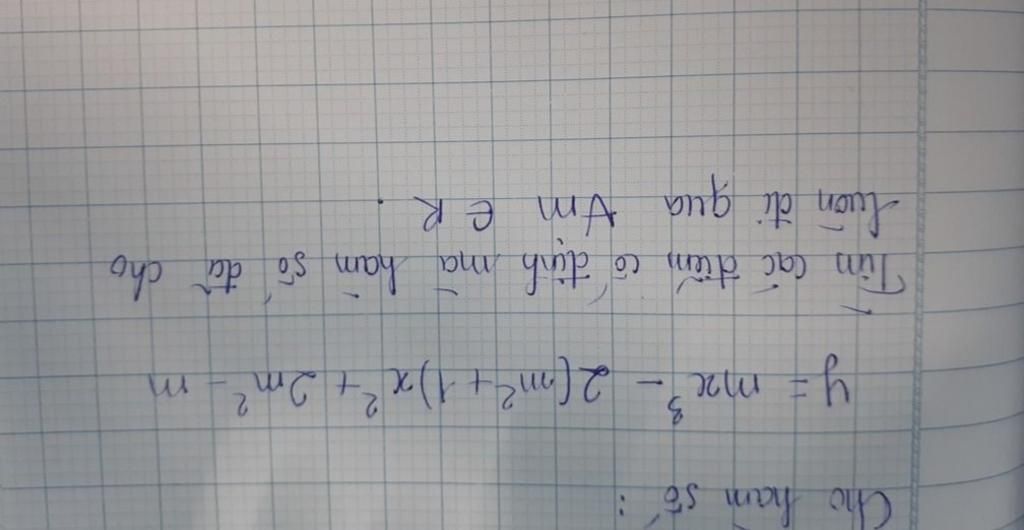 Cho hàm số :
y = mx³ - 2(m² + 1)x² + 2m² - m
Tìm các điểm cố định mà hàm số đã cho
luôn đi qua ∀m ∈ R.